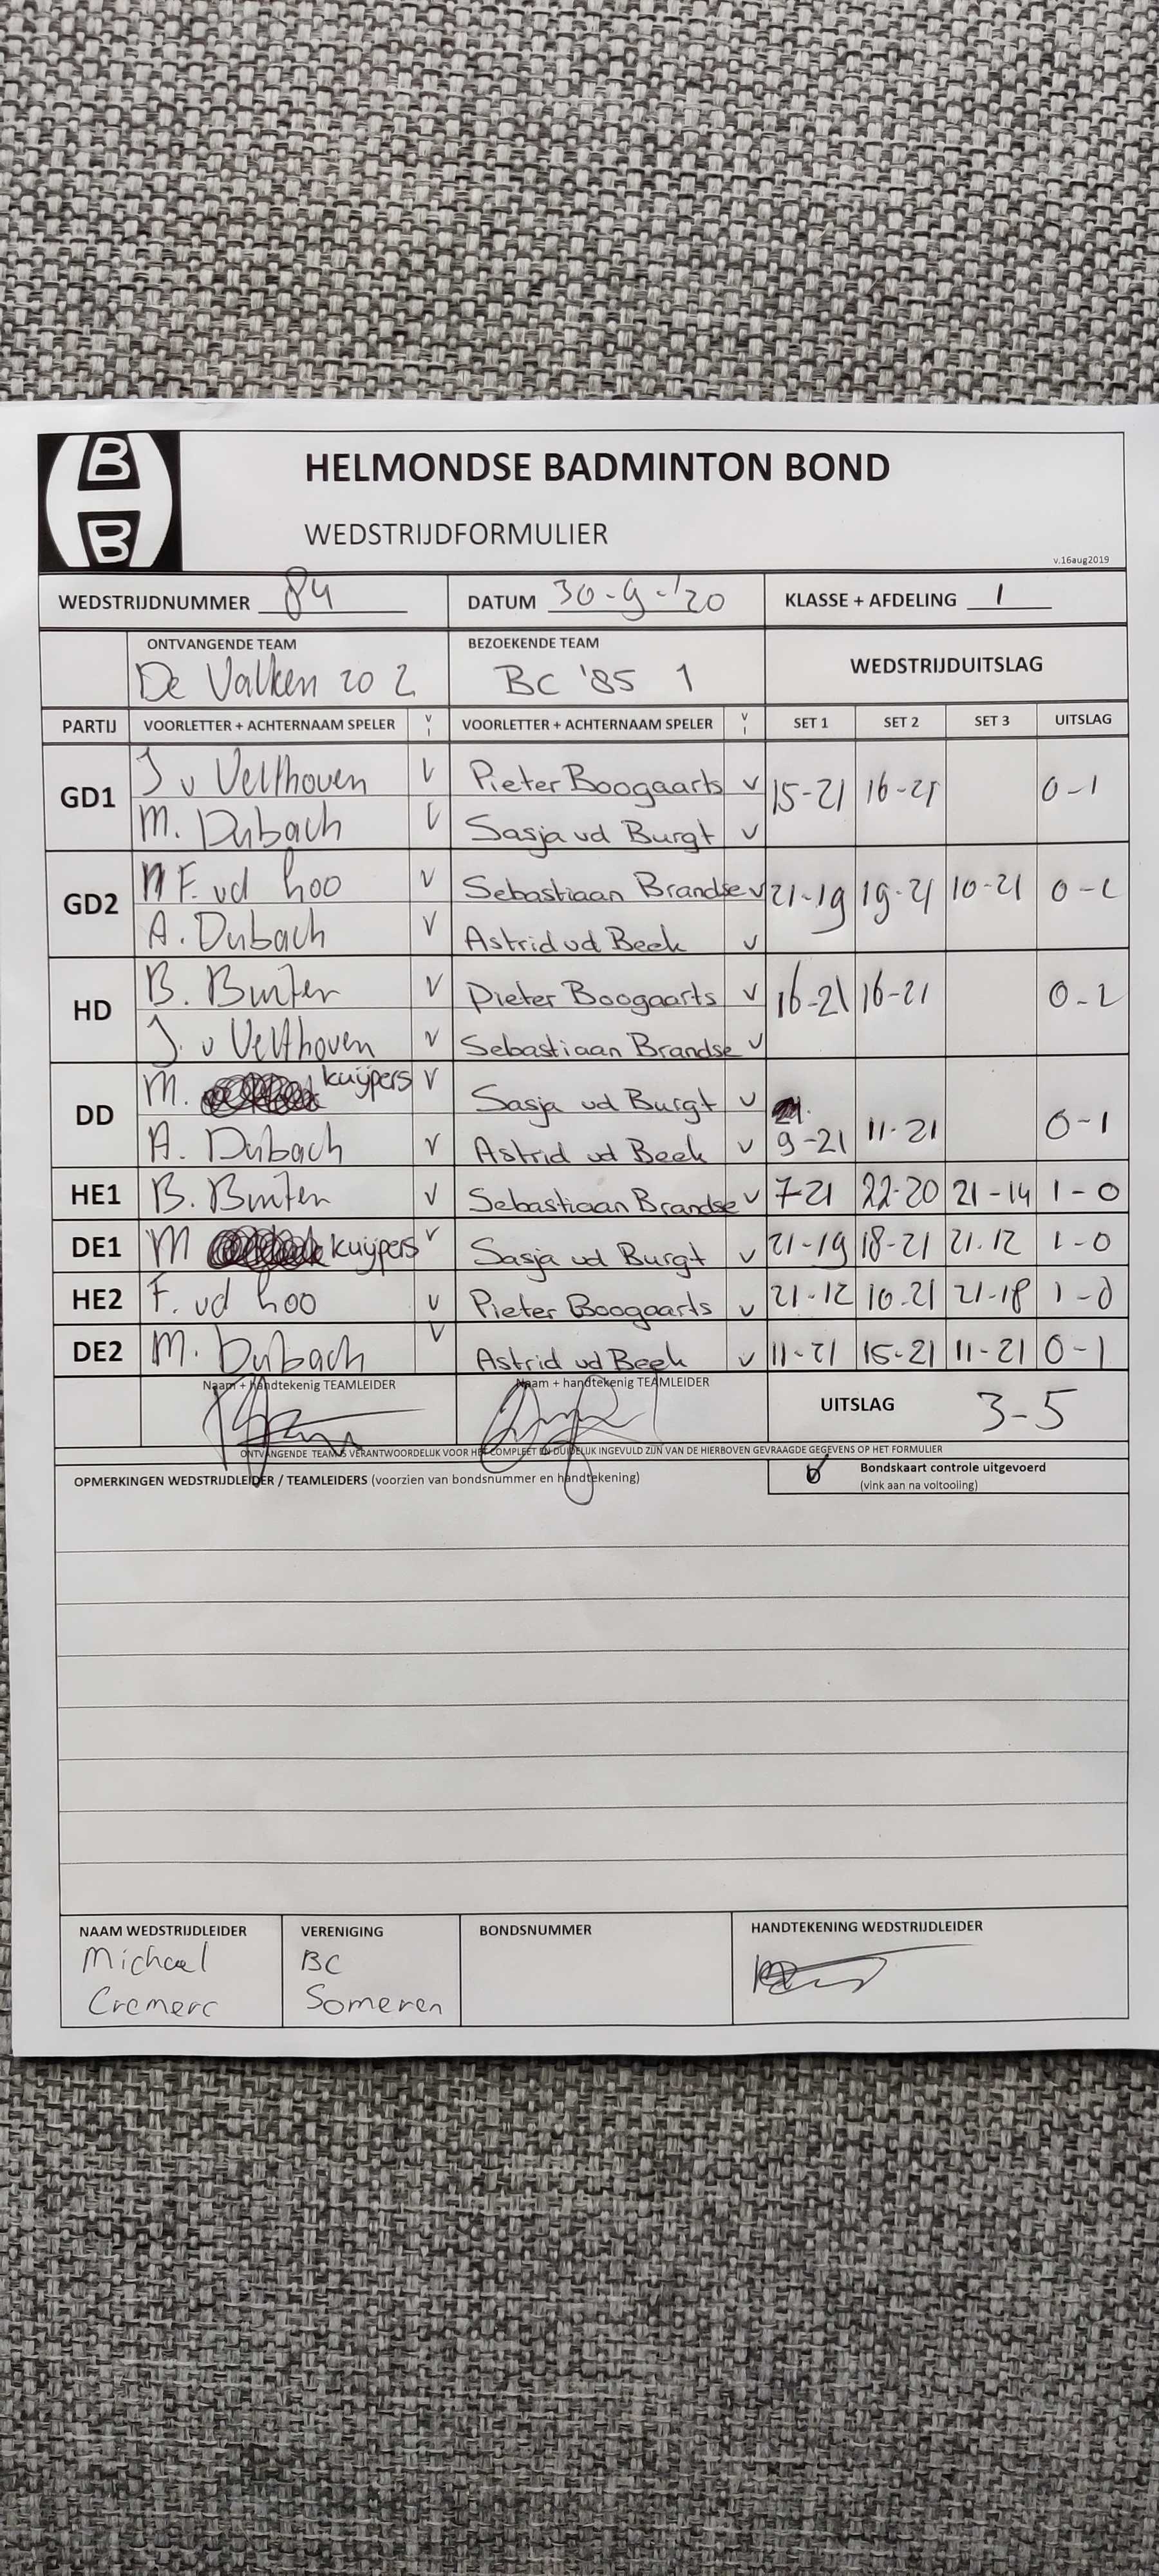 HELMONDSE BADMINTON BOND
WEDSTRIJDFORMULIER
v.16aug2019
WEDSTRIJDNUMMER 84 DATUM 30-9-'20 KLASSE + AFDELING 1
ONTVANGENDE TEAM BEZOEKENDE TEAM WEDSTRIJDUITSLAG
De Valken 20 2 BC '85 1
PARTIJ VOORLETTER + ACHTERNAAM SPELER V I VOORLETTER + ACHTERNAAM SPELER V I SET 1 SET 2 SET 3 UITSLAG
GD1 J v Velthoven V Pieter Boogaarts V 15-21 16-21 0-1
M. Dubach V Sasja vd Burgt V
GD2 F. vd Loo V Sebastiaan Brandse V 21-19 19-21 10-21 0-1
A. Dubach V Astrid vd Beek V
HD B. Bunten V Pieter Boogaarts V 16-21 16-21 0-1
J. v Velthoven V Sebastiaan Brandse V
DD M. kuijpers V Sasja vd Burgt V 9-21 11-21 0-1
A. Dubach V Astrid vd Beek V
HE1 B. Bunten V Sebastiaan Brandse V 7-21 22-20 21-14 1-0
DE1 M kuijpers V Sasja vd Burgt V 21-19 18-21 21-12 1-0
HE2 F. vd Loo V Pieter Boogaarts V 21-12 10-21 21-18 1-0
DE2 M. Dubach V Astrid vd Beek V 11-21 15-21 11-21 0-1
Naam + handtekenig TEAMLEIDER Naam + handtekenig TEAMLEIDER UITSLAG 3-5
ONTVANGENDE TEAM IS VERANTWOORDELIJK VOOR HET COMPLEET EN DUIDELIJK INGEVULD ZIJN VAN DE HIERBOVEN GEVRAAGDE GEGEVENS OP HET FORMULIER
OPMERKINGEN WEDSTRIJDLEIDER / TEAMLEIDERS (voorzien van bondsnummer en handtekening) Bondskaart controle uitgevoerd
(vink aan na voltooiing)
NAAM WEDSTRIJDLEIDER VERENIGING BONDSNUMMER HANDTEKENING WEDSTRIJDLEIDER
Michael BC
Cremers Someren